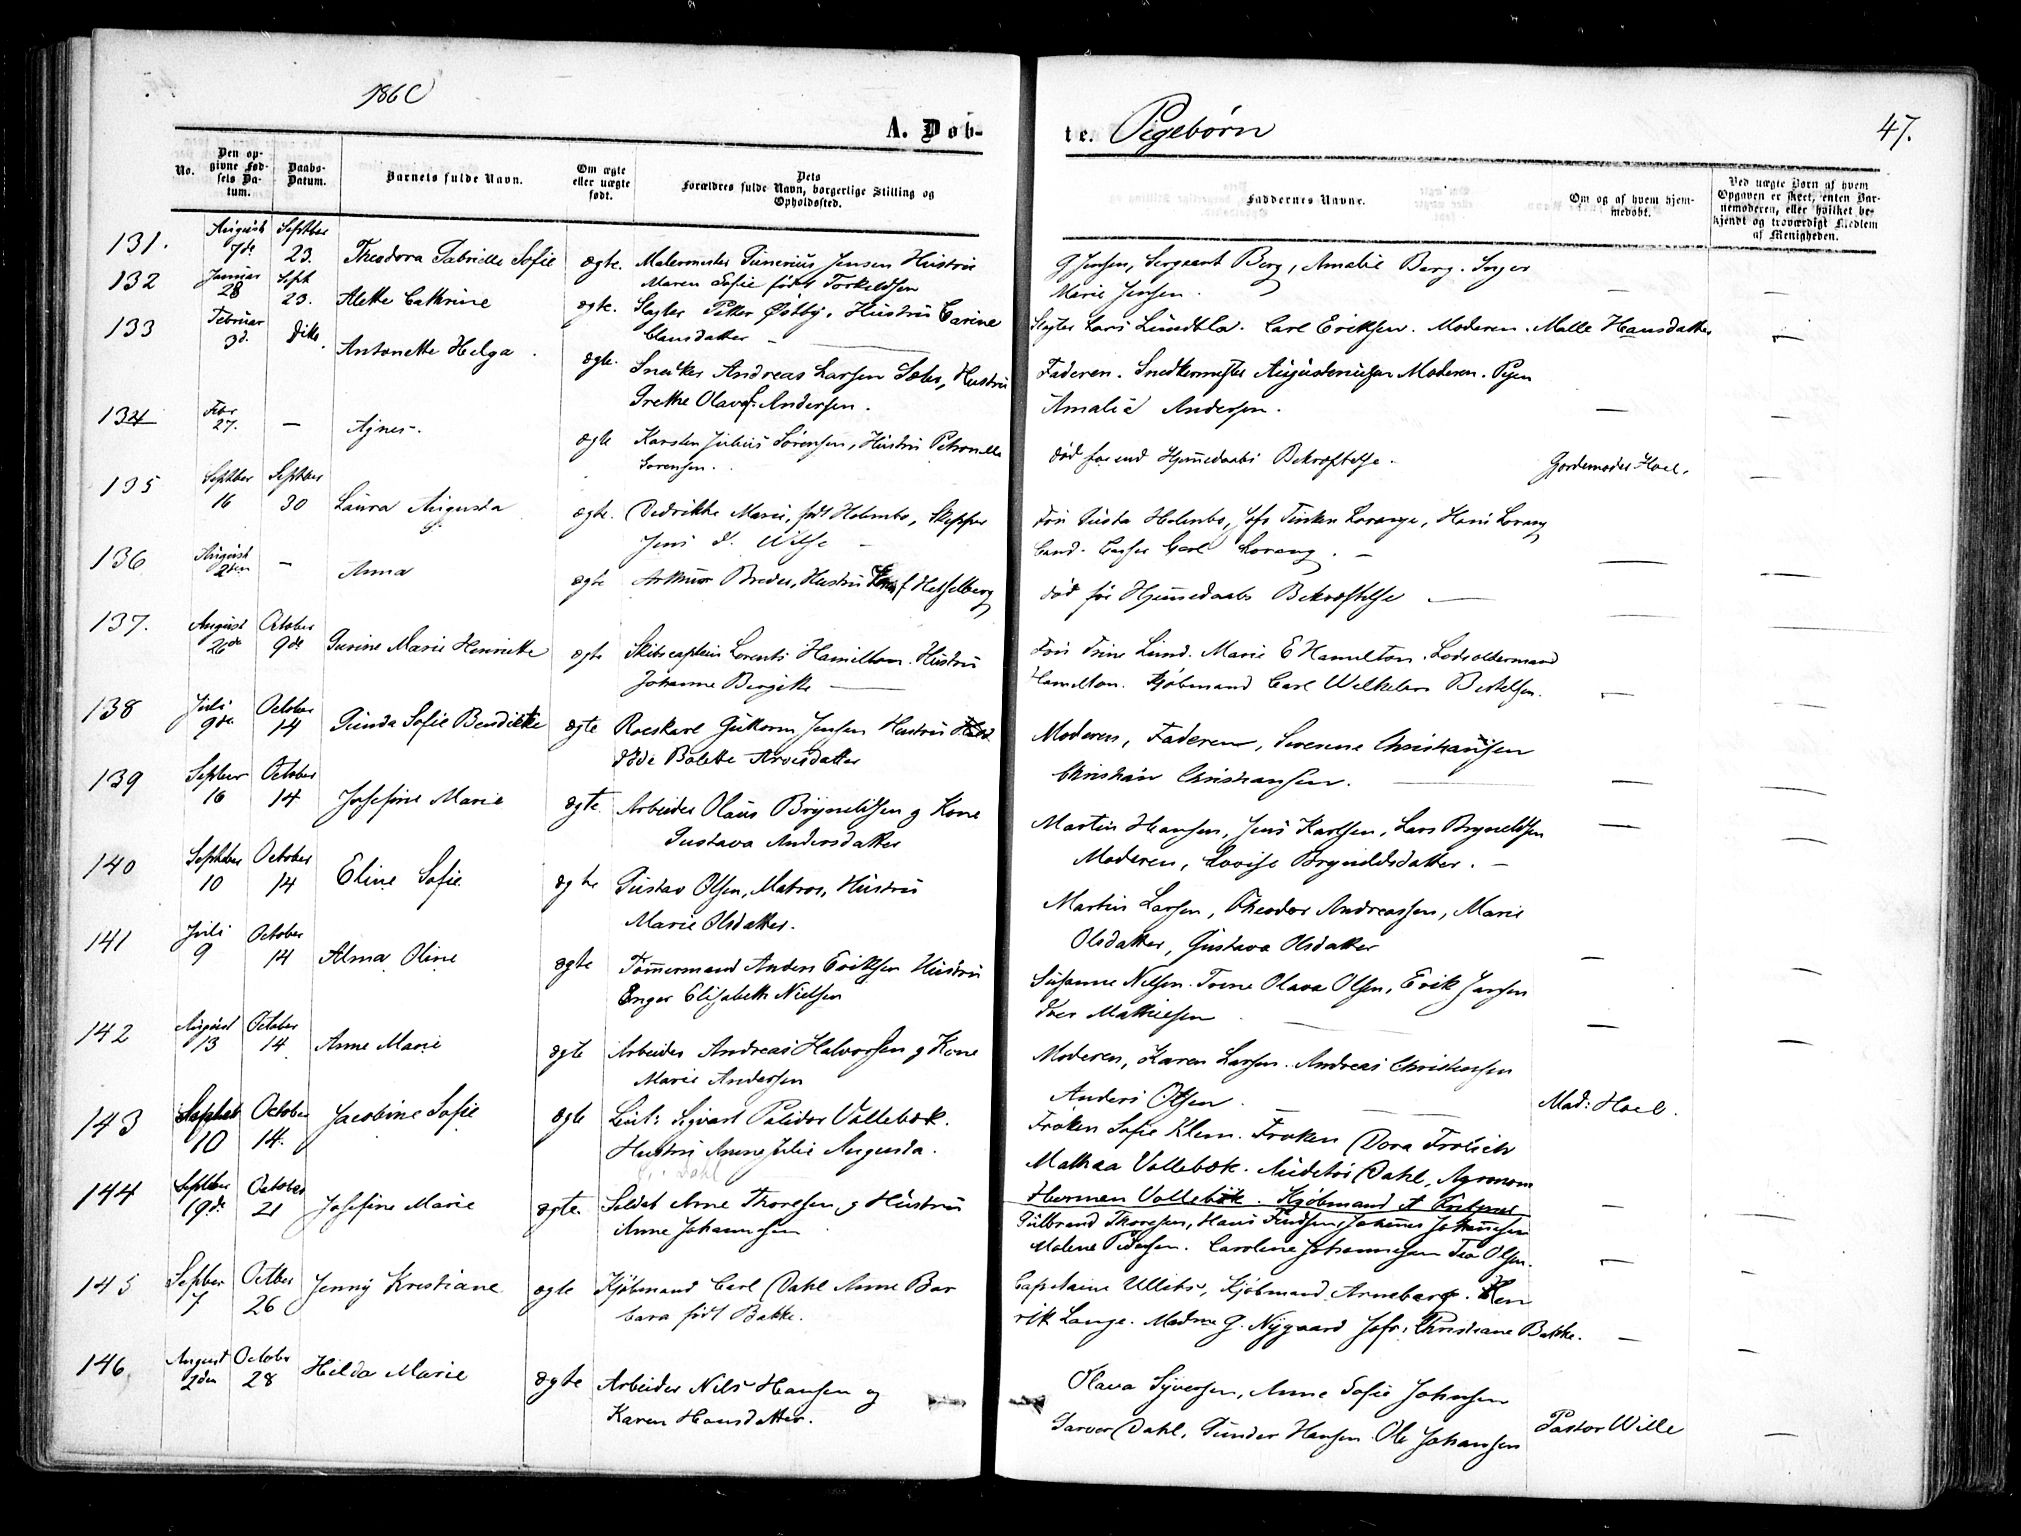 1860
A. Døb-
te. Pigebørn
47.
No.
Den op-
givne Fød-
sels Da-
tum.
Daabs-
Datum.
Barnets fulde Navn.
Om ægte
eller uægte
født.
Dets
Forældres fulde Navn, borgerlige Stilling og
Opholdssted.
Faddernes Navne.
Om og af hvem hjem-
medøbt.
Ved uægte Børn af hvem
Opgaven er skeet, enten Bar-
nemoderen, eller hvilket be-
kjendt og troværdigt Medlem
af Menigheden.
131. August 7de Septber 23. Theodora Gabrielle Sofie ægte. Malermester Gunerius Jensen Hustru
Maren Sofie født Torkeldsen
G Jensen, Sergeant Berg, Amalie Berg.
Marie Jensen.
132 Januar 28 Sept 23. Alette Cathrine ægte. Slagter Petter Østby, Hustru Carine
Clausdatter
Slagter Lars Carl Eriksen. Moderen. Malle Hansdatter
133 Februar 3d. dito. Antonette Helga. ægte. Snedker Andreas Larsen Hustru
Grethe Olava f. Andersen.
Faderen. Snedkermester Augustinusen Moderen. Pigen
Amalie Andersen.
134 27. — Agnes. ægte Karsten Julius Sørensen, Hustru Petronelle
Sørensen.
død før end Hjemmedaabs Bekræftelse. Gjordemoder Hoel.
135 Septber 16 Septber 30 Laura Augusta ægte. Dedrikke Marie, født Holmbo, Skipper
Jens
Frk Gusta Holmbo, Jfr Lorange, Hans Lorang
Cand. Carl Lorang.
136 August — Anna ægte Arthur Breder, Hustru f Hesselberg
død før Hjemmedaabs Bekræftelse —
137. August 20de October 9de Gurine Marie Henriette ægte Skibscaptein Lorents Hamilton. Hustru
Johanne Bergitte
Trine Lund. Marie E Hamilton. Lodsoldermand
Hamilton. Kjøbmand Carl Wilhelm Bertelsen.
138 Juli 9de October 14 Gunda Sofie Bendikte ægte Roeskarl Guttorm Jensen Hustru
Bolette Arvesdatter
Moderen, Faderen, Serene Christiansen
Christian Christiansen.
139 Septber 16 October 14 Josefine Marie ægte. Arbeider Olaus Brynildsen g Kone
Gustava Andersdatter
Martin Hansen, Jens Karlsen, Lars Brynildsen
Moderen, Lovise Brynildsdatter. —
140 Septber 10 October 14 Eline Sofie ægte Gustav Olsen, Matros, Hustru
Marie Olsdatter.
Martin Larsen, Theodor Andreassen, Marie
Olsdatter, Gustava Olsdatter
141 Juli 9 October 14 Alma Oline ægte Tømmermand Anders Eriksen Hustru
Enger Elisabeth Nielsen
Susanne Nilsen. Trine Olava Olsen, Erik Jensen
Iver Mathiesen
142 August 13 October 14 Anne Marie ægte Arbeider Andreas Halvorsen g Kone
Marie Andersen
Moderen, Karen Larsen. Andreas Christensen
Anders Olsen. Mad: Hoel.
143 Septbr 10 October 14. Jacobine Sofie ægte Leut: Sigvart Vollebæk.
Hustru Anne Julie Augusta.
f: Dahl
Frøken Sofie Klem. Frøken Dora Frølich
Mathea Vollebæk. Dahl, Agronom
Herman Vollebæk. Kjøbmand A
144 Septber 19de October 21 Josefine Marie ægte. Soldat Arne Thoresen g Hustru
Anne Johannesen
Gulbrand Thoresen, Hans Johannes Johannesen
Malene Pedersen. Caroline Johannesen Olsen.
145 Septber 7 Octber 26 Jenny Kristiane ægte Kjøbmand Carl Dahl Anne Bar
bara født Bakke.
Capitaine Kjøbmand Arneberg. Hen
rik Lange. Madme G. Nygaard Jfr. Christiane Bakke.
146 August 2den October 28 Hilda Marie ægte Arbeider Nils Hansen og
Karen Hansdatter.
Olava Syversen, Anne Sofie Johnsen
Dahl. Gunder Hansen. Ole Johansen Pastor Wille